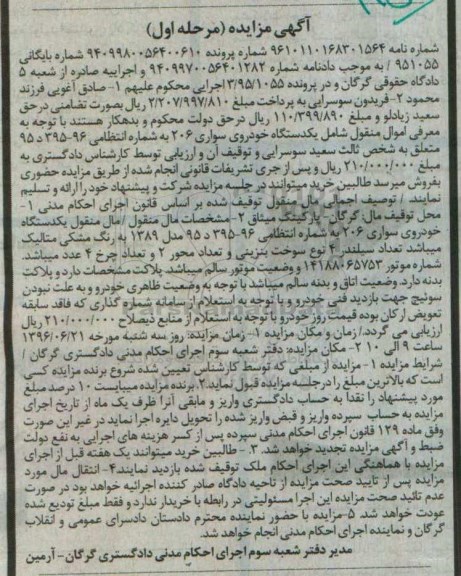 آگهی مزایده (مرحله اول)
شماره نامه ۹۶۱۰۱۱۰۱۶۸۳۰۱۵۶۴ شماره پرونده ۹۴۰۹۹۸۰۰۵۶۴۰۰۶۱۰ شماره بایگانی
۹۵۱۰۵۵ / به موجب دادنامه شماره ۹۴۰۹۹۷۰۰۵۶۴۰۱۲۸۲ و اجراییه صادره از شعبه ۵
دادگاه حقوقی گرگان و در پرونده ۳/۹۵/۱۰۵۵ اجرایی محکوم علیهم ۱- صادق آغویی فرزند
محمود ۲- فریدون سوسرایی به پرداخت مبلغ ۲/۲۰۷/۹۹۷/۸۱۰ ریال بصورت تضامنی در حق
سعید زیادلو و مبلغ ۱۱۰/۳۹۹/۸۹۰ ریال در حق دولت محکوم و بدهکار هستند با توجه به
معرفی اموال منقول شامل یکدستگاه خودروی سواری ۲۰۶ به شماره انتظامی ۹۶-۳۹۵ د ۹۵
متعلق به شخص ثالث سعید سوسرایی و توقیف آن و ارزیابی توسط کارشناس دادگستری به
مبلغ ۲۱۰/۰۰۰/۰۰۰ ریال و پس از جری تشریفات قانونی انجام شده از طریق مزایده حضوری
بفروش میرسد طالبین خرید میتوانند در جلسه مزایده شرکت و پیشنهاد خود را ارائه و تسلیم
نمایند. / توصیف اجمالی مال منقول توقیف شده بر اساس قانون اجرای احکام مدنی ۱-
محل توقیف مال: گرگان- پارکینگ میثاق ۲- مشخصات مال منقول / مال منقول یکدستگاه
خودروی سواری ۲۰۶ به شماره انتظامی ۹۶-۳۹۵ د ۹۵ مدل ۱۳۸۹ به رنگ مشکی متالیک
میباشد تعداد سیلندر ۴ نوع سوخت بنزینی و تعداد محور ۲ و تعداد چرخ ۴ عدد میباشد.
شماره موتور ۱۴۱۸۸۰۶۵۷۵۳ و وضعیت موتور سالم میباشد. پلاکت مشخصات دارد و پلاکت
بدنه دارد. وضعیت اتاق و بدنه سالم میباشد با توجه به وضعیت ظاهری خودرو و به علت نبودن
سوئیچ جهت بازدید فنی خودرو و با توجه به استعلام از سامانه شماره گذاری که فاقد سابقه
تعویض ارکان بوده قیمت روز خودرو با توجه به استعلام از منابع ذیصلاح ۲۱۰/۰۰۰/۰۰۰ ریال
ارزیابی می گردد. / زمان و مکان مزایده ۱- زمان مزایده: روز سه شنبه مورخه ۱۳۹۶/۰۶/۲۱
ساعت ۹ الی ۱۰ ۲- مکان مزایده: دفتر شعبه سوم اجرای احکام مدنی دادگستری گرگان /
شرایط مزایده ۱- مزایده از مبلغی که توسط کارشناس تعیین شده شروع برنده مزایده کسی
است که بالاترین مبلغ را در جلسه مزایده قبول نماید ۲. برنده مزایده میبایست ۱۰ درصد مبلغ
مورد پیشنهاد را نقدا به حساب دادگستری واریز و مابقی آنرا ظرف یک ماه از تاریخ اجرای
مزایده به حساب سپرده واریز و قبض واریز شده را تحویل دایره اجرا نماید در غیر این صورت
وفق ماده ۱۲۹ قانون اجرای احکام مدنی سپرده پس از کسر هزینه های اجرایی به نفع دولت
ضبط و آگهی مزایده تجدید خواهد شد. ۳- طالبین خرید میتوانند یک هفته قبل از اجرای
مزایده با هماهنگی این اجرای احکام ملک توقیف شده بازدید نمایند. ۴- انتقال مال مورد
مزایده پس از تایید صحت مزایده از ناحیه دادگاه صادر کننده اجرائیه خواهد بود در صورت
عدم تائید صحت مزایده این اجرا مسئولیتی در رابطه با خریدار ندارد و فقط مبلغ تودیع شده
عودت خواهد شد. ۵- مزایده با حضور نماینده محترم دادستان دادسرای عمومی و انقلاب
گرگان و نماینده اجرای احکام مدنی انجام خواهد شد.
مدیر دفتر شعبه سوم اجرای احکام مدنی دادگستری گرگان- آرمین